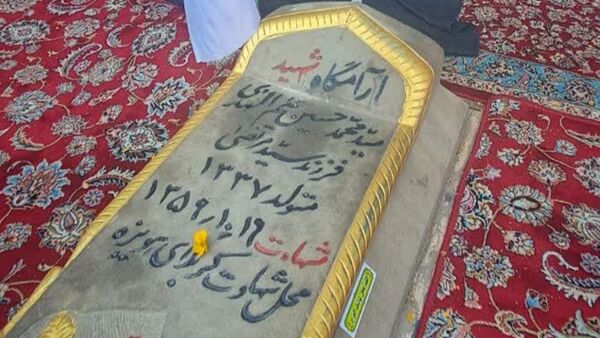 آرامگاه شهید
سید محمد حسین علم الهدی
فرزند سید مرتضی
متولد ۱۳۳۷
شهادت ۱۳۵۹/۱۰/۱۶
محل شهادت کربلای هویزه